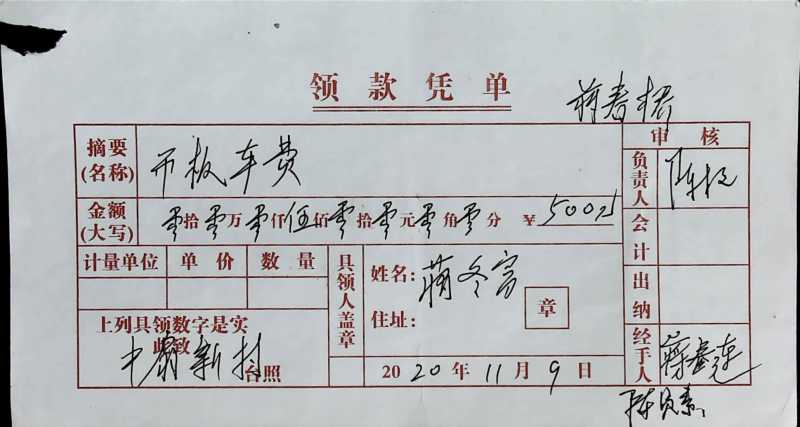 领款凭单
蒋春桥
审核
摘要(名称) 币板车费
负责人 陈
金额(大写) 零拾零万零仟伍佰零拾零元零角零分 ¥ 500元
会计
计量单位 单价 数量
具领人盖章
姓名: 蒋冬富
住址:
章
出纳
上列具领数字是实
此致
中 新村 台照
2020年11月9日
经手人 蒋
陈